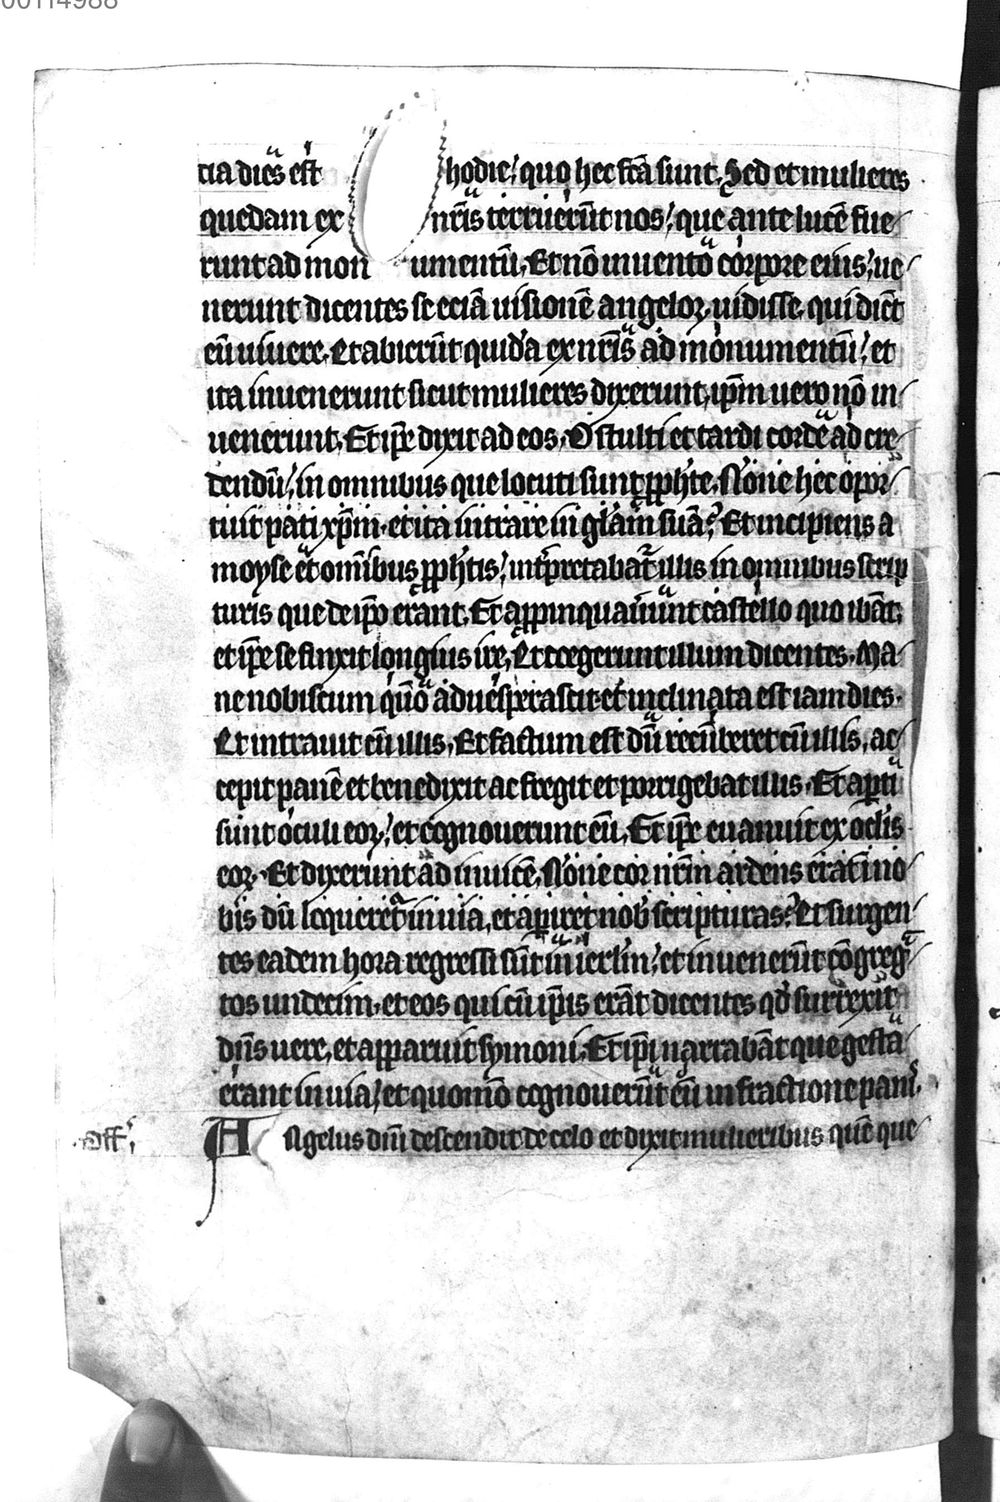 00114988
cia dies est hodie, quo hec fc̄a sunt. Sed et mulieres
quedam ex nr̄is terruer̄ut nos, que ante lucē fue
runt ad monumentū. Et nō inuento corpore eius, ue
nerunt dicentes se eciā uisionē angeloꝝ uidisse, qui dicūt
eū uiuere. Et abierūt quidā ex nr̄is ad monumentū, et
ita inuenerunt sicut mulieres dixerunt, ip̄m uero nō in
uenerunt. Et ip̄e dixit ad eos. O stulti et tardi corde ad cre
dendū, in omnibus que locuti sunt ꝓph̄te. Nōne hec opor
tuit pati xp̄m. et ita intrare in glāiam suā? Et incipiens a
moyse et omībus ꝓph̄tis, int̄pretabat᷑ illis in omnibus scrip
turis que de ip̄o erant. Et aꝓpinquauūnt castello quo ibāt,
et ip̄e se finxit longius ire. Et cœgerunt illum dicentes. Ma
ne nobiscum qūo aduesꝑascit. et inclinata est iam dies.
Et intrauit cū illis. Et factum est dū recūberet cū illis, ac
cepit panē et benedixit ac fregit et porrigebat illis. Et aꝑti
sunt oculi eoꝝ, et cognouerunt eū. Et ip̄e euanuit ex oclis
eoꝝ. Et dixerunt ad inuicē. Nōne cor nr̄m ardens erat ī no
bis dū loqueret᷑ in uia, et aꝑiret nob̄ scripturas? Et surgen
tes eadem hora regressi sūt in ierl̄m, et inuenerūt cōgrega
tos undecim. et eos qui cū ip̄is erāt dicentes qd̄ surrexit
dn̄s uere, et apparuit symoni. Et ip̄i narrabāt que gesta
erant in uia, et quomō cognouerūt eū in fractione panis.
Off̄. Angelus dn̄i descendit de celo et dixit mulieribus quē que